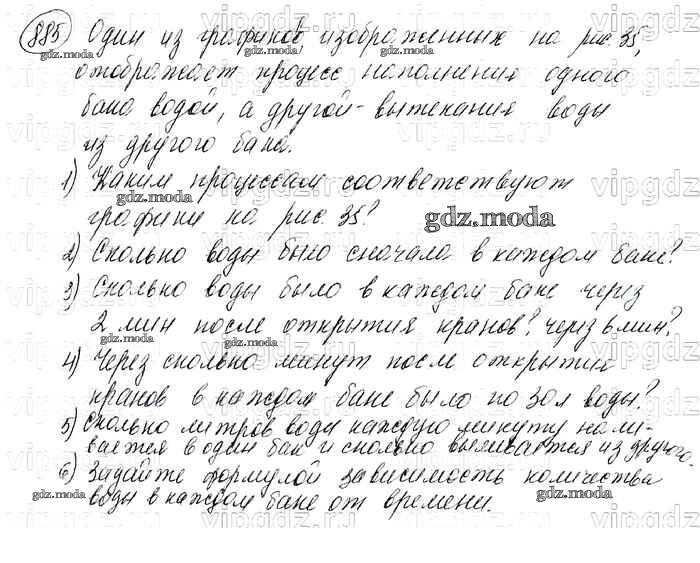 885 Один из графиков, изображенных на рис. 35,
отображает процесс наполнения одного
бака водой, а другой - вытекания воды
из другого бака.
1) Каким процессам соответствуют
графики на рис. 35?
2) Сколько воды было сначала в каждом баке?
3) Сколько воды было в каждом баке через
2 мин после открытия кранов? через 6 мин?
4) Через сколько минут после открытия
кранов в каждом баке было по 30 л воды?
5) Сколько литров воды каждую минуту нали-
вается в один бак и сколько выливается из другого.
6) Задайте формулой зависимость количества
воды в каждом баке от времени.
gdz.moda
vipgdz.ru